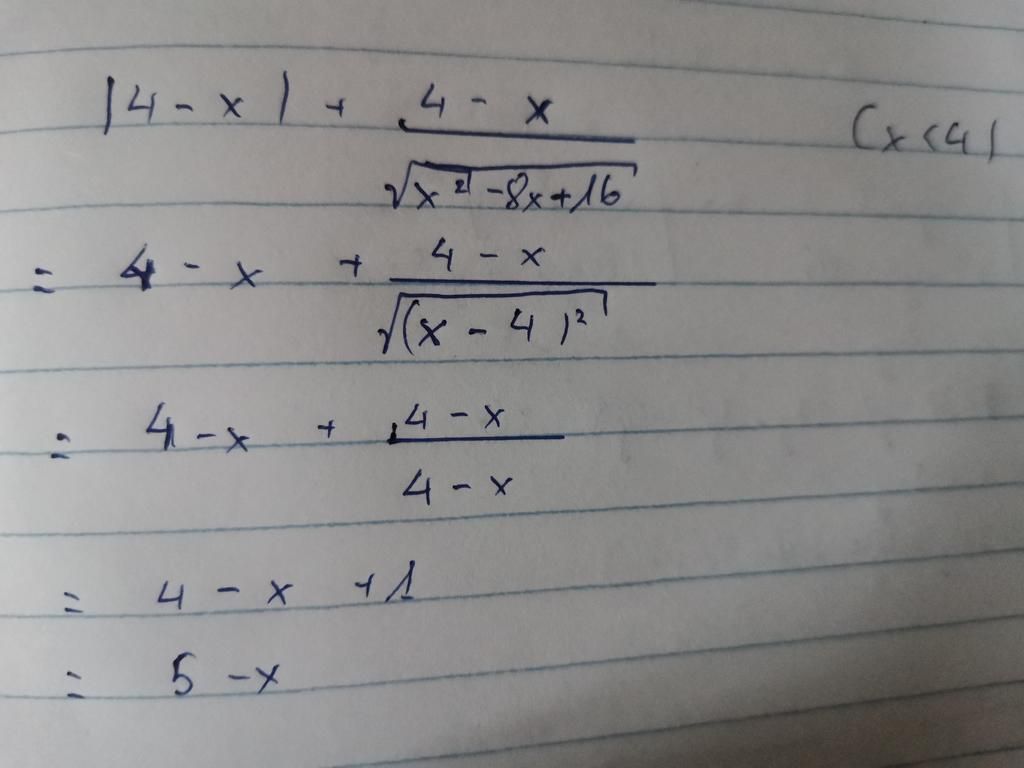 |4 - x| + (4 - x)/√(x² - 8x + 16) (x < 4)
= 4 - x + (4 - x)/√((x - 4)²)
= 4 - x + (4 - x)/(4 - x)
= 4 - x + 1
= 5 - x